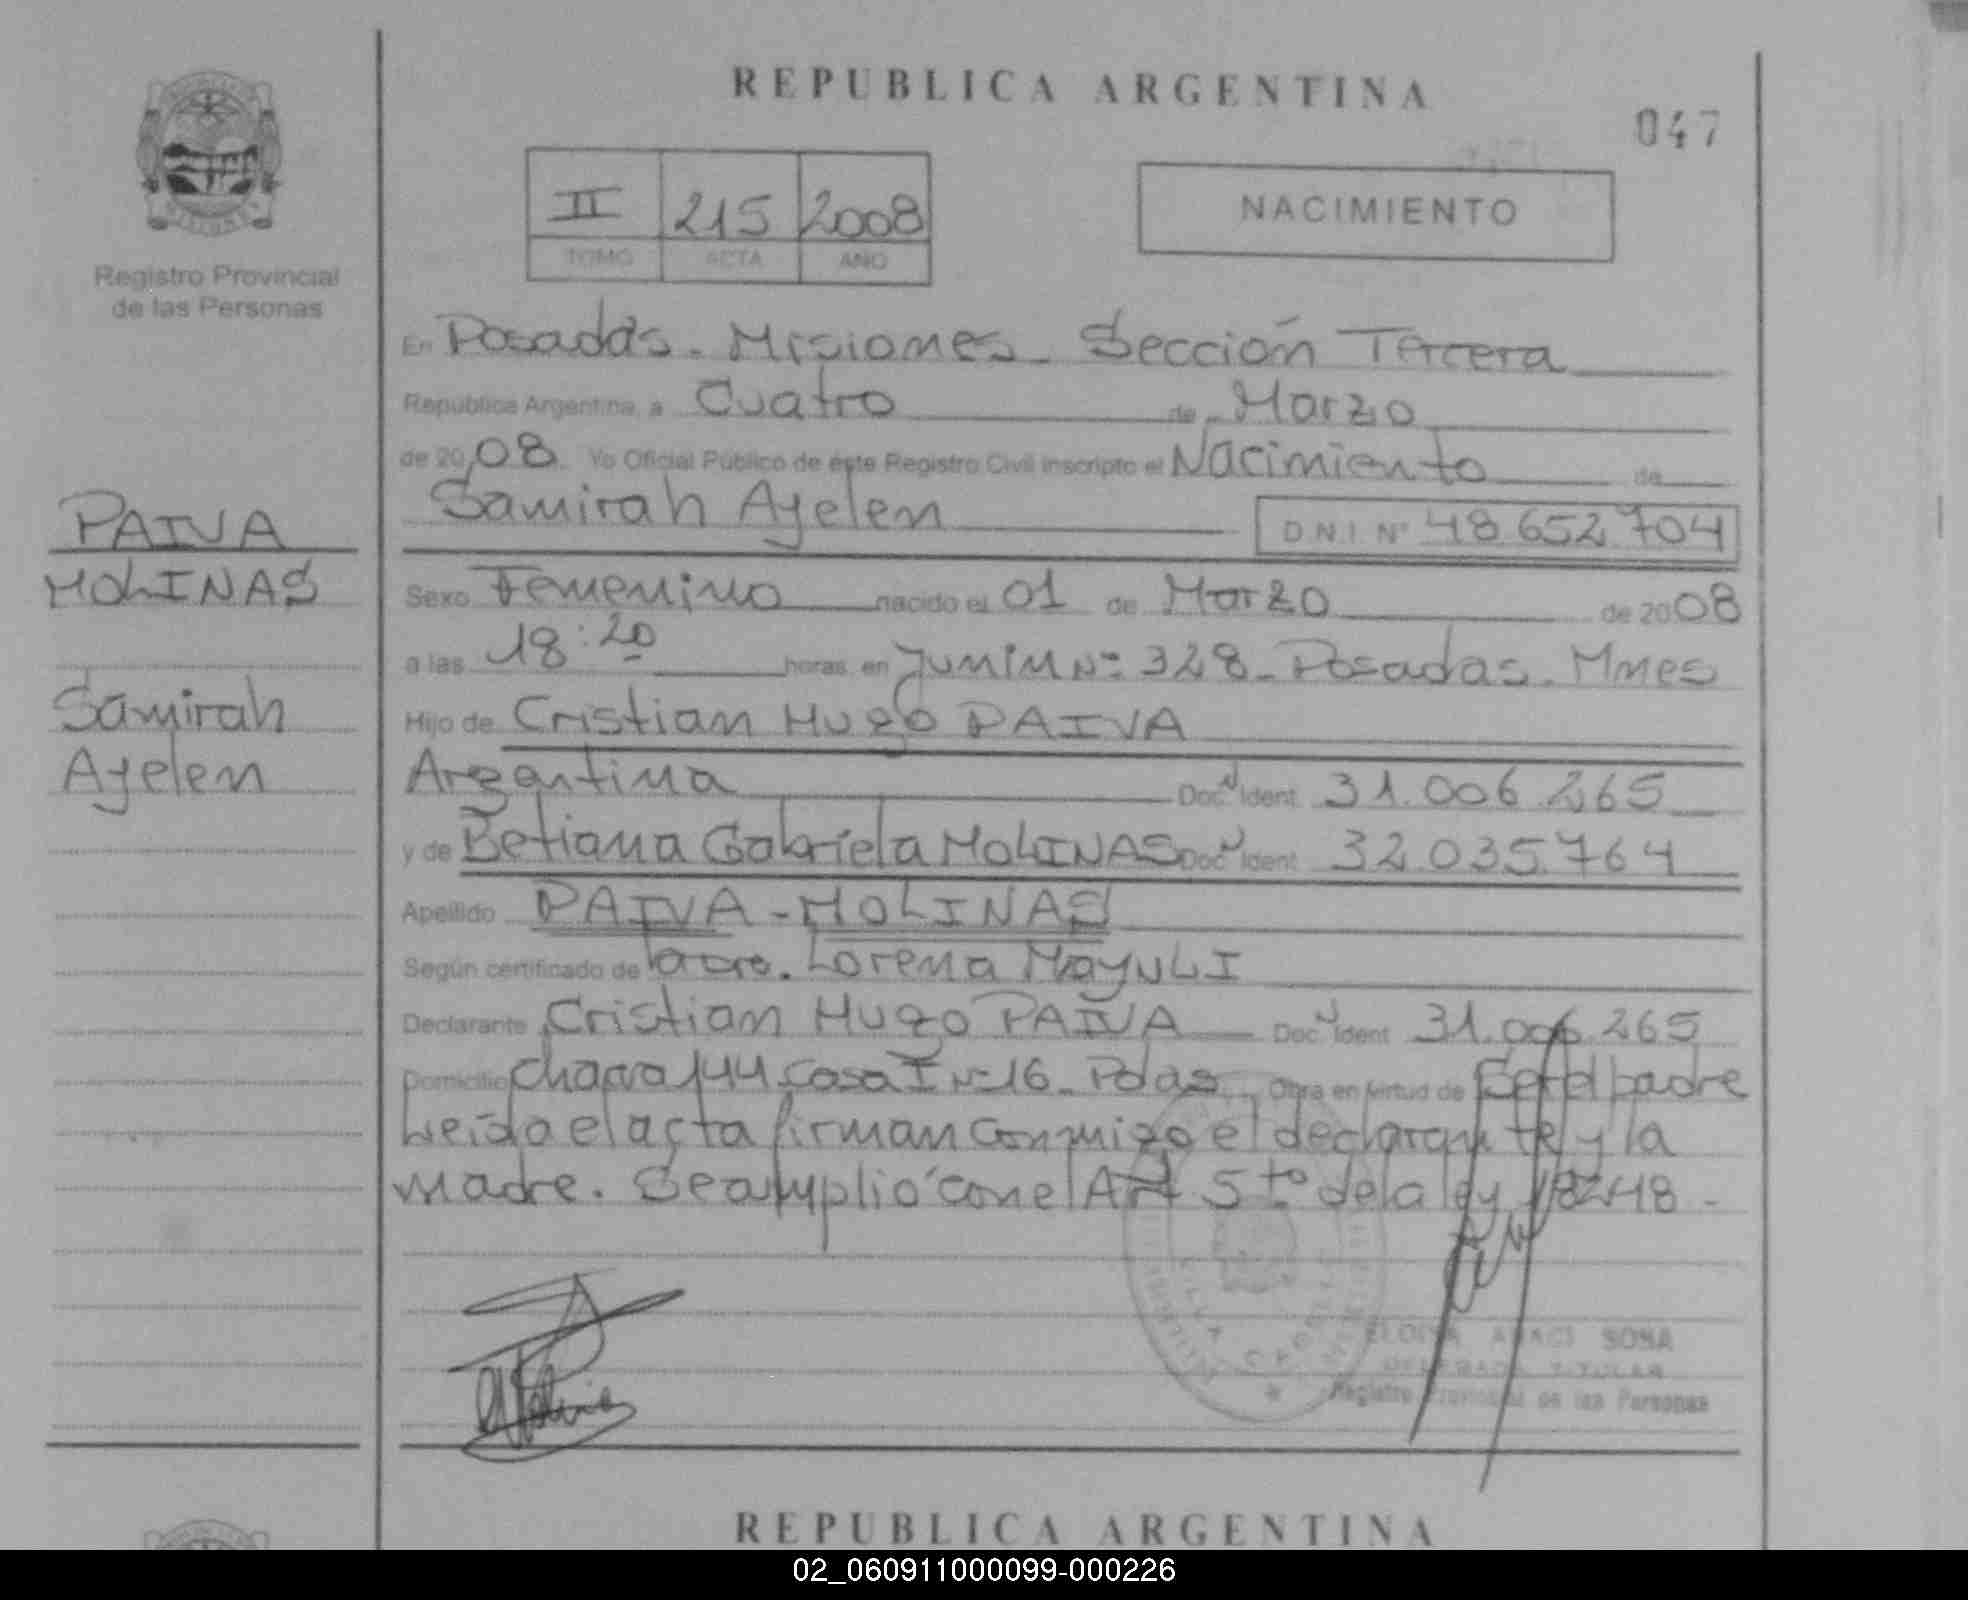 REPUBLICA ARGENTINA
047
II 215 2008
TOMO ACTA AÑO
NACIMIENTO
Registro Provincial
de las Personas
PAIVA
MOLINAS
Samirah
Ayelen
En Posadas - Misiones - Sección Tercera
República Argentina, a Cuatro de Marzo
de 2008 Yo Oficial Público de este Registro Civil inscripto el Nacimiento de
Samirah Ayelen D.N.I. Nº 48.652.704
Sexo Femenino nacido el 01 de Marzo de 2008
a las 18:20 horas en Junin Nº 328 - Posadas - Mnes
Hijo de Cristian Hugo PAIVA
Argentina Doc. Ident 31.006.265
y de Betiana Gabriela MOLINAS Doc. Ident 32.035.764
Apellido PAIVA - MOLINAS
Según certificado de Lorena
Declarante Cristian Hugo PAIVA Doc. Ident 31.006.265
Domicilio Chacra 144 Casa I Nº 16 - Pdas Obra en virtud de Ser el padre
Leída el acta firman conmigo el declarante y la
madre. Se amplió con el Art 5to de la ley 18248 -
SOSA
DELEGADA TITULAR
Registro Provincial de las Personas
REPUBLICA ARGENTINA
02_060911000099-000226